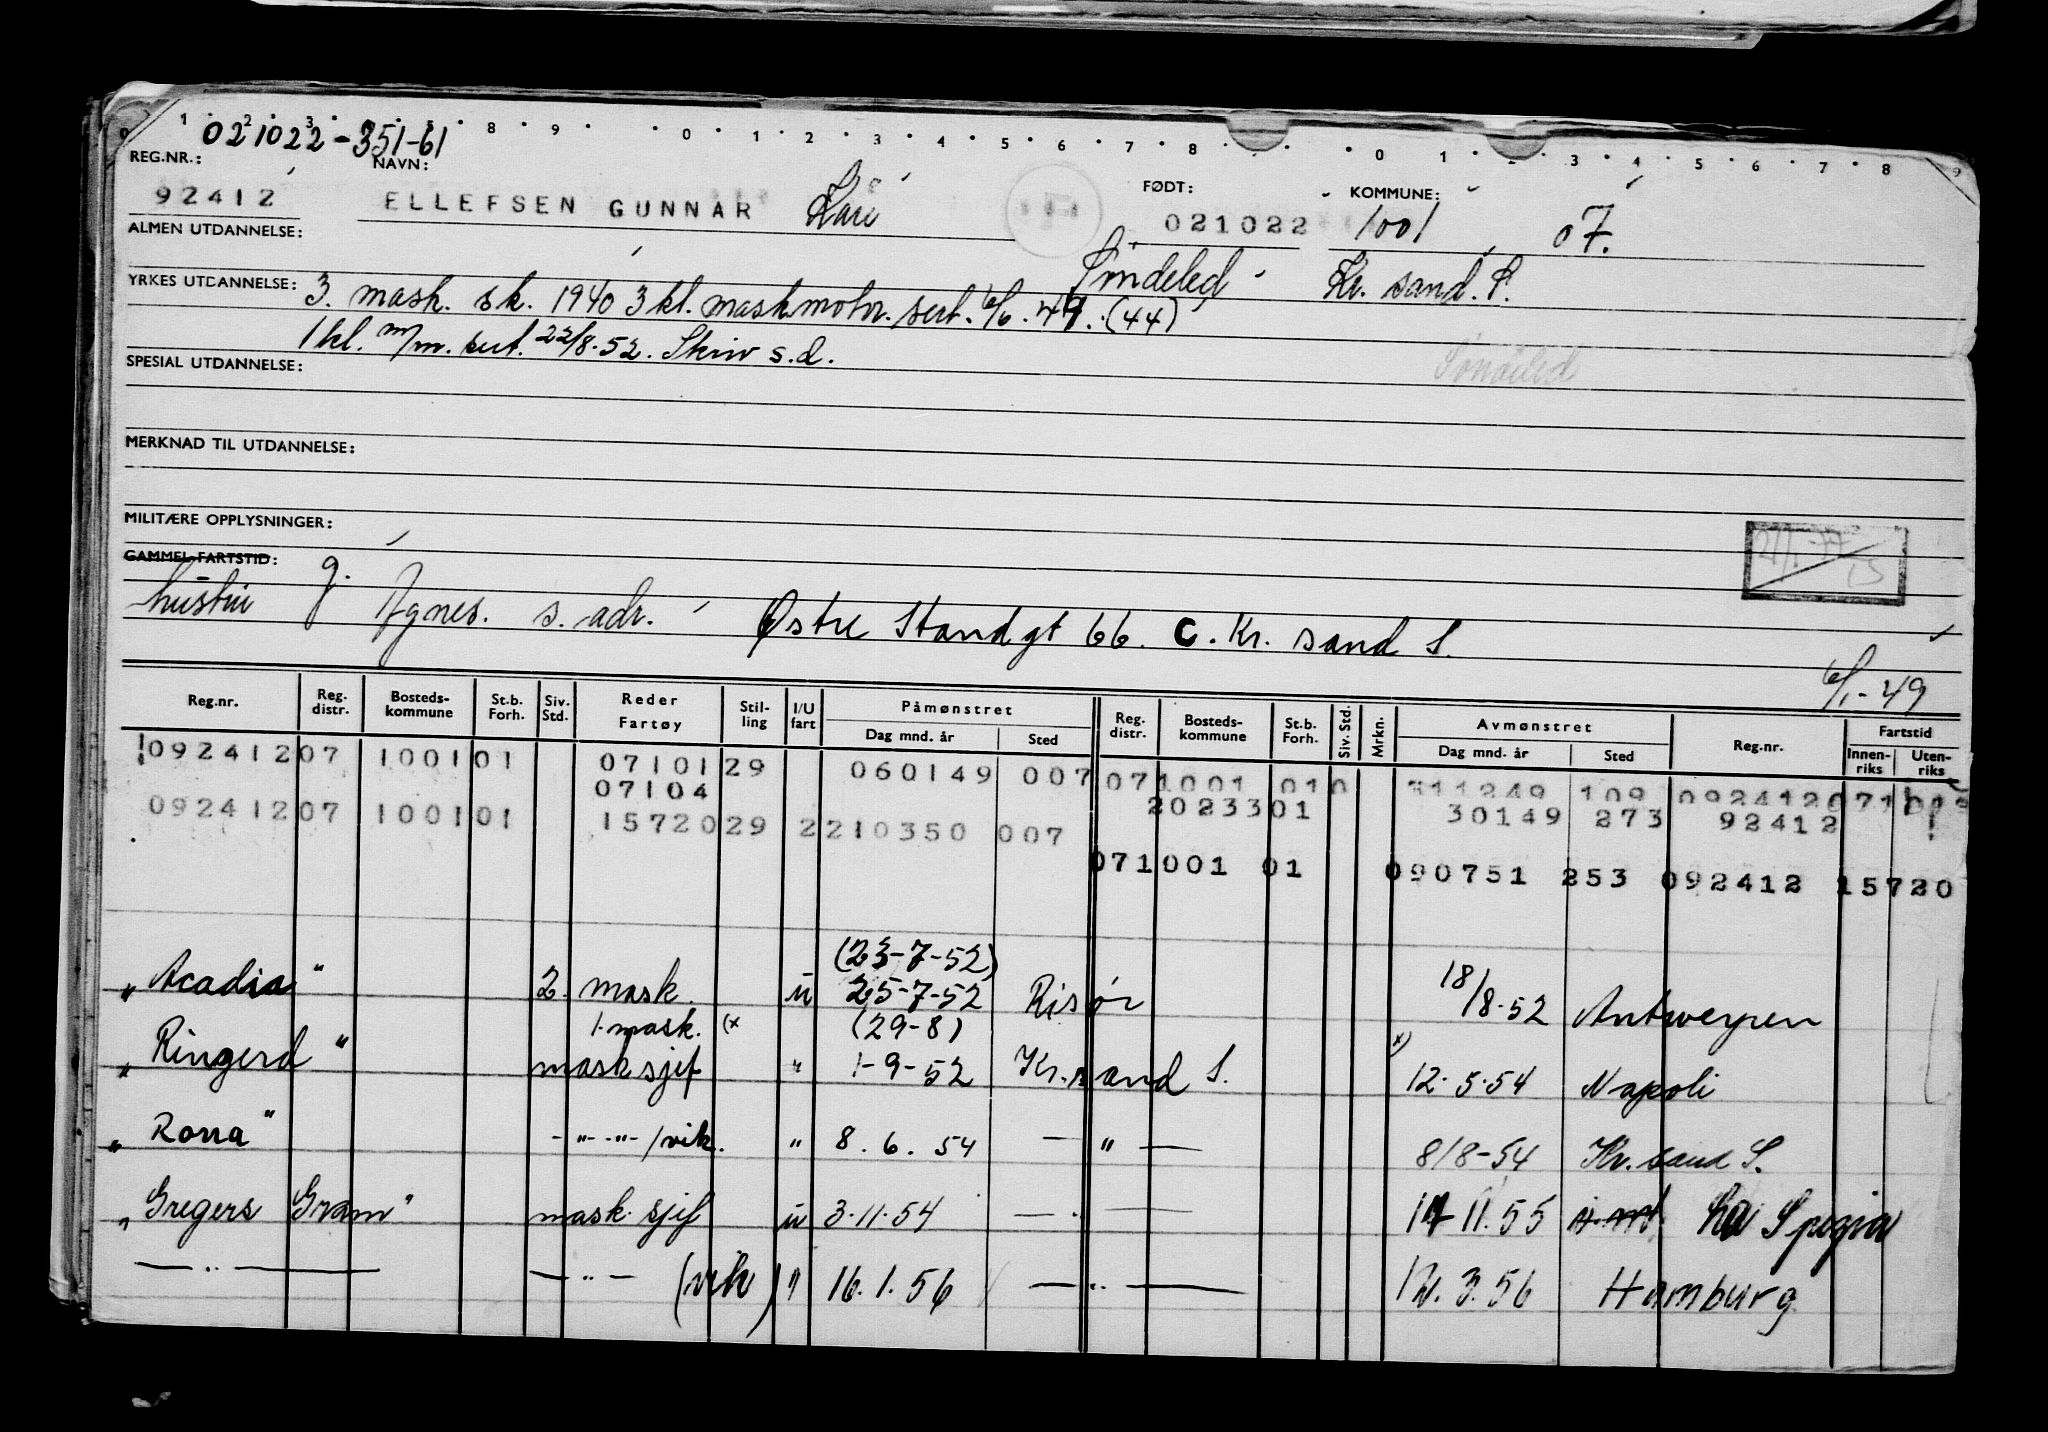 021022-351-61
REG.NR.: NAVN: FØDT: KOMMUNE:
92412 ELLEFSEN GUNNAR Kåre 021022 1001 07.
ALMEN UTDANNELSE: Søndeled Kr. sand. S.
YRKES UTDANNELSE: 3. mask. sk. 1940 3 kl. maskmotor. sert. 6/6. 49. (44)
1 kl. m/m. sert. 22/8.52. Skriv s.d.
SPESIAL UTDANNELSE: Søndeled
MERKNAD TIL UTDANNELSE:
MILITÆRE OPPLYSNINGER:
GAMMEL FARTSTID: g.
hustru Agnes. s. adr. Østre Strandgt 66. C. Kr. sand S.
6/1-49
Reg.nr. Reg. distr. Bosteds- kommune St.b. Forh. Siv. Std. Reder Fartøy Stil- ling I/U fart Påmønstret Dag mnd. år Sted Reg. distr. Bosteds- kommune St.b. Forh. Siv. Std. Mrkn. Avmønstret Dag mnd. år Sted Reg.nr. Fartstid Innen- riks Uten- riks
092412 07 1001 01 07101 29 060149 007 071001 010 311249 109 092412 071
07104 20233 01 30149 273 92412
092412 07 1001 01 15720 29 2 210350 007
071001 01 090751 253 092412 15720
(23-7-52)
„Acadia" 2. mask. u 25-7-52 Risør 18/8-52 Antwerpen
1. mask. (x (29-8)
„Ringerd" masksjef " 1-9-52 Kr. sand S. x) 12.5.54 Napoli
„Rona" -"- -"- /vik. " 8.6.54 — " — 8/8-54 Kr. sand S.
„Gregers Gram" mask. sjef u 3.11.54 — . — 14 11.55 La Spezia
— .. — — .. — (vik) " 16.1.56 — .. — 12.3.56 Hamburg